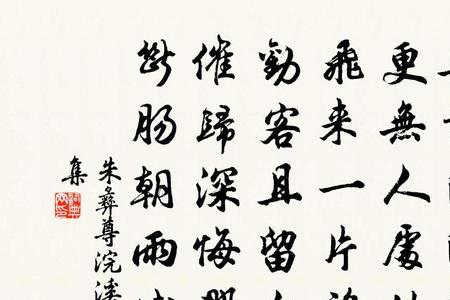 更無人處
飛来一片
勸客且留
催歸深悔
斷腸朝雨
朱彝尊浣溪
集